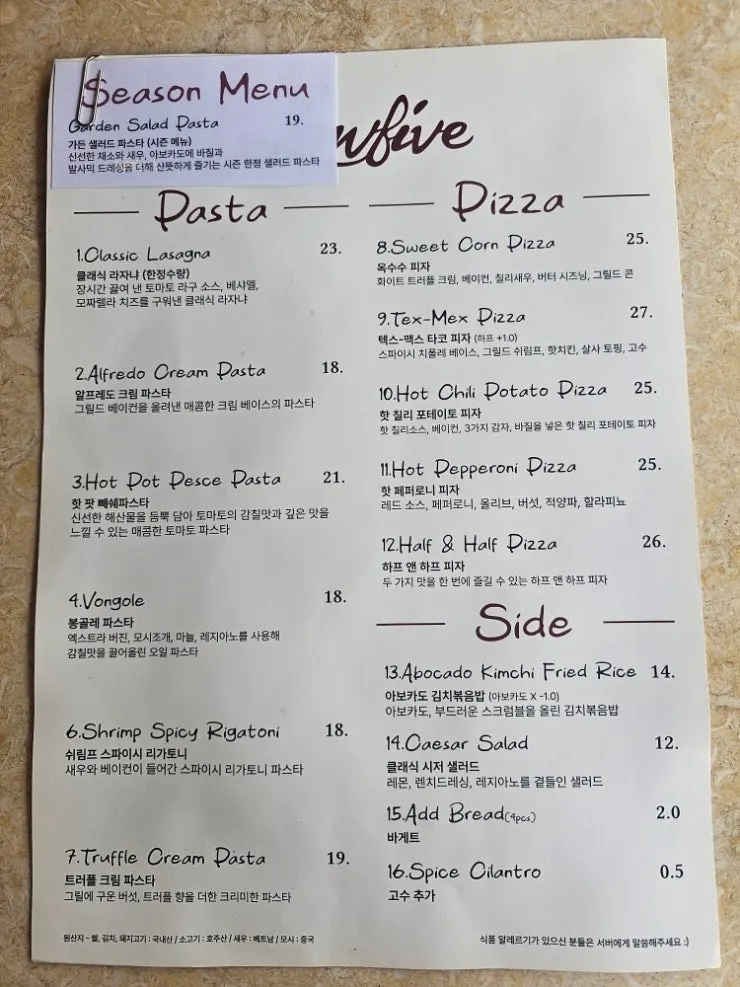 Season Menu
Garden Salad Pasta 19.
가든 샐러드 파스타 (시즌 메뉴)
신선한 채소와 새우, 아보카도에 바질과
발사믹 드레싱을 더해 산뜻하게 즐기는 시즌 한정 샐러드 파스타
wfive
Pasta
1.Classic Lasagna 23.
클래식 라자냐 (한정수량)
장시간 끓여 낸 토마토 라구 소스, 베샤멜,
모짜렐라 치즈를 구워낸 클래식 라자냐
2.Alfredo Cream Pasta 18.
알프레도 크림 파스타
그릴드 베이컨을 올려낸 매콤한 크림 베이스의 파스타
3.Hot Pot Pesce Pasta 21.
핫 팟 빼쉐파스타
신선한 해산물을 듬뿍 담아 토마토의 감칠맛과 깊은 맛을
느낄 수 있는 매콤한 토마토 파스타
4.Vongole 18.
봉골레 파스타
엑스트라 버진, 모시조개, 마늘, 레지아노를 사용해
감칠맛을 끌어올린 오일 파스타
6.Shrimp Spicy Rigatoni 18.
쉬림프 스파이시 리가토니
새우와 베이컨이 들어간 스파이시 리가토니 파스타
7.Truffle Cream Pasta 19.
트러플 크림 파스타
그릴에 구운 버섯, 트러플 향을 더한 크리미한 파스타
원산지 - 쌀, 김치, 돼지고기 : 국내산 / 소고기 : 호주산 / 새우 : 베트남 / 모시 : 중국
Pizza
8.Sweet Corn Pizza 25.
옥수수 피자
화이트 트러플 크림, 베이컨, 칠리새우, 버터 시즈닝, 그릴드 콘
9.Tex-Mex Pizza 27.
텍스-맥스 타코 피자 (하프 +1.0)
스파이시 치폴레 베이스, 그릴드 쉬림프, 핫치킨, 살사 토핑, 고수
10.Hot Chili Potato Pizza 25.
핫 칠리 포테이토 피자
핫 칠리소스, 베이컨, 3가지 감자, 바질을 넣은 핫 칠리 포테이토 피자
11.Hot Pepperoni Pizza 25.
핫 페퍼로니 피자
레드 소스, 페퍼로니, 올리브, 버섯, 적양파, 할라피뇨
12.Half & Half Pizza 26.
하프 앤 하프 피자
두 가지 맛을 한 번에 즐길 수 있는 하프 앤 하프 피자
Side
13.Abocado Kimchi Fried Rice 14.
아보카도 김치볶음밥 (아보카도 X -1.0)
아보카도, 부드러운 스크럼블을 올린 김치볶음밥
14.Caesar Salad 12.
클래식 시저 샐러드
레몬, 렌치드레싱, 레지아노를 곁들인 샐러드
15.Add Bread(4pcs) 2.0
바게트
16.Spice Cilantro 0.5
고수 추가
식품 알레르기가 있으신 분들은 서버에게 말씀해주세요 :)